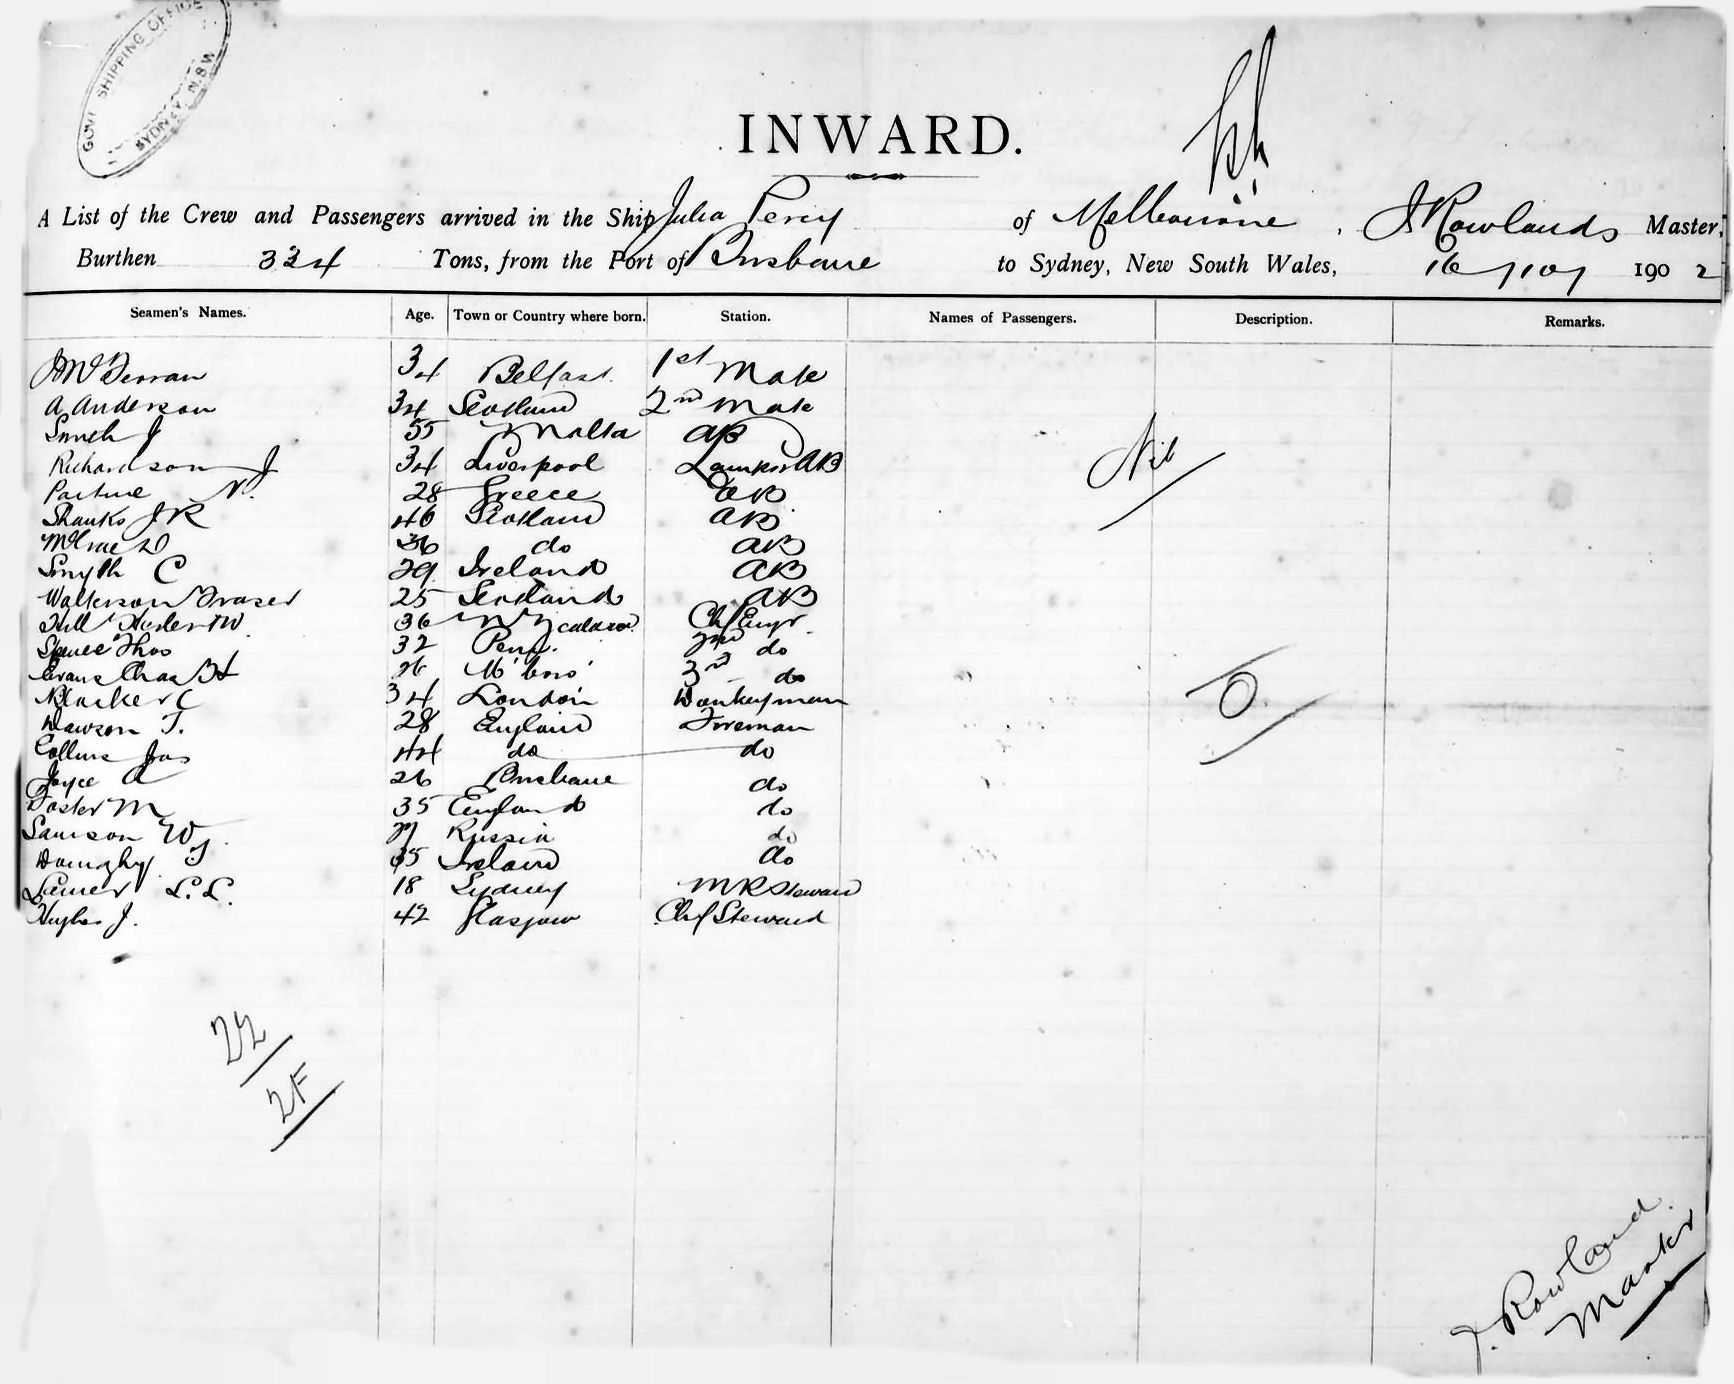 GOVT SHIPPING OFFICE
SYDNEY. N.S.W.
INWARD.
A List of the Crew and Passengers arrived in the Ship Julia Percy of Melbourne, J Rowlands Master,
Burthen 334 Tons, from the Port of Brisbane to Sydney, New South Wales, 16 1902
Seamen's Names. Age. Town or Country where born. Station. Names of Passengers. Description. Remarks.
34 Belfast 1st Mate
A Anderson 34 Scotland 2nd Mate
Smith J 55 Malta AB
Richardson J 34 Liverpool AB
N. 28 Greece AB
Nil
Shanks J R 46 Scotland AB
McCrae D 36 do AB
Smyth C 29 Ireland AB
Fraser 25 Scotland AB
36 Chf Engr.
Spence Thos 32 2nd do
Evans Chas H 26 M'boro' 3rd do
34 London Donkeyman
O
Dawson T. 28 England Fireman
Collins Jas 44 do do
Joyce A 26 Brisbane do
Foster M 35 England do
Samson W Russia do
J 35 Ireland do
L. L. 18 Sydney M R Steward
Hughes J. 42 Glasgow Chf Steward
22
2F
J. Rowland
Master